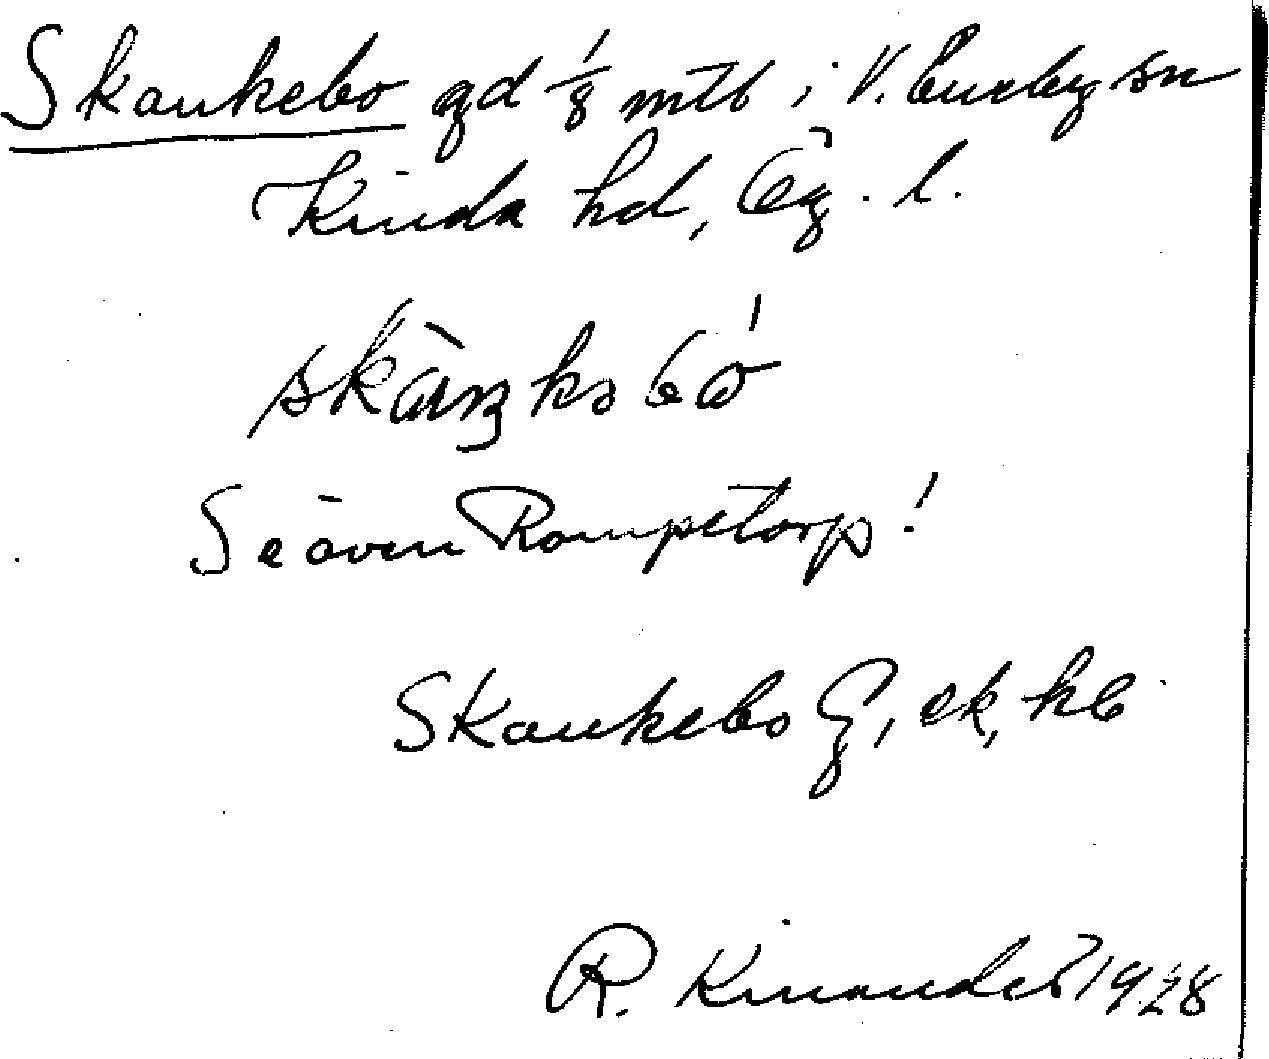 Skankebo gd 1/8 mtl i V. Eneby sn
Kinda hd, Ög. l.
Se även Rompetorp!
Skankebo G, ek, kb
R. Kinander 1928